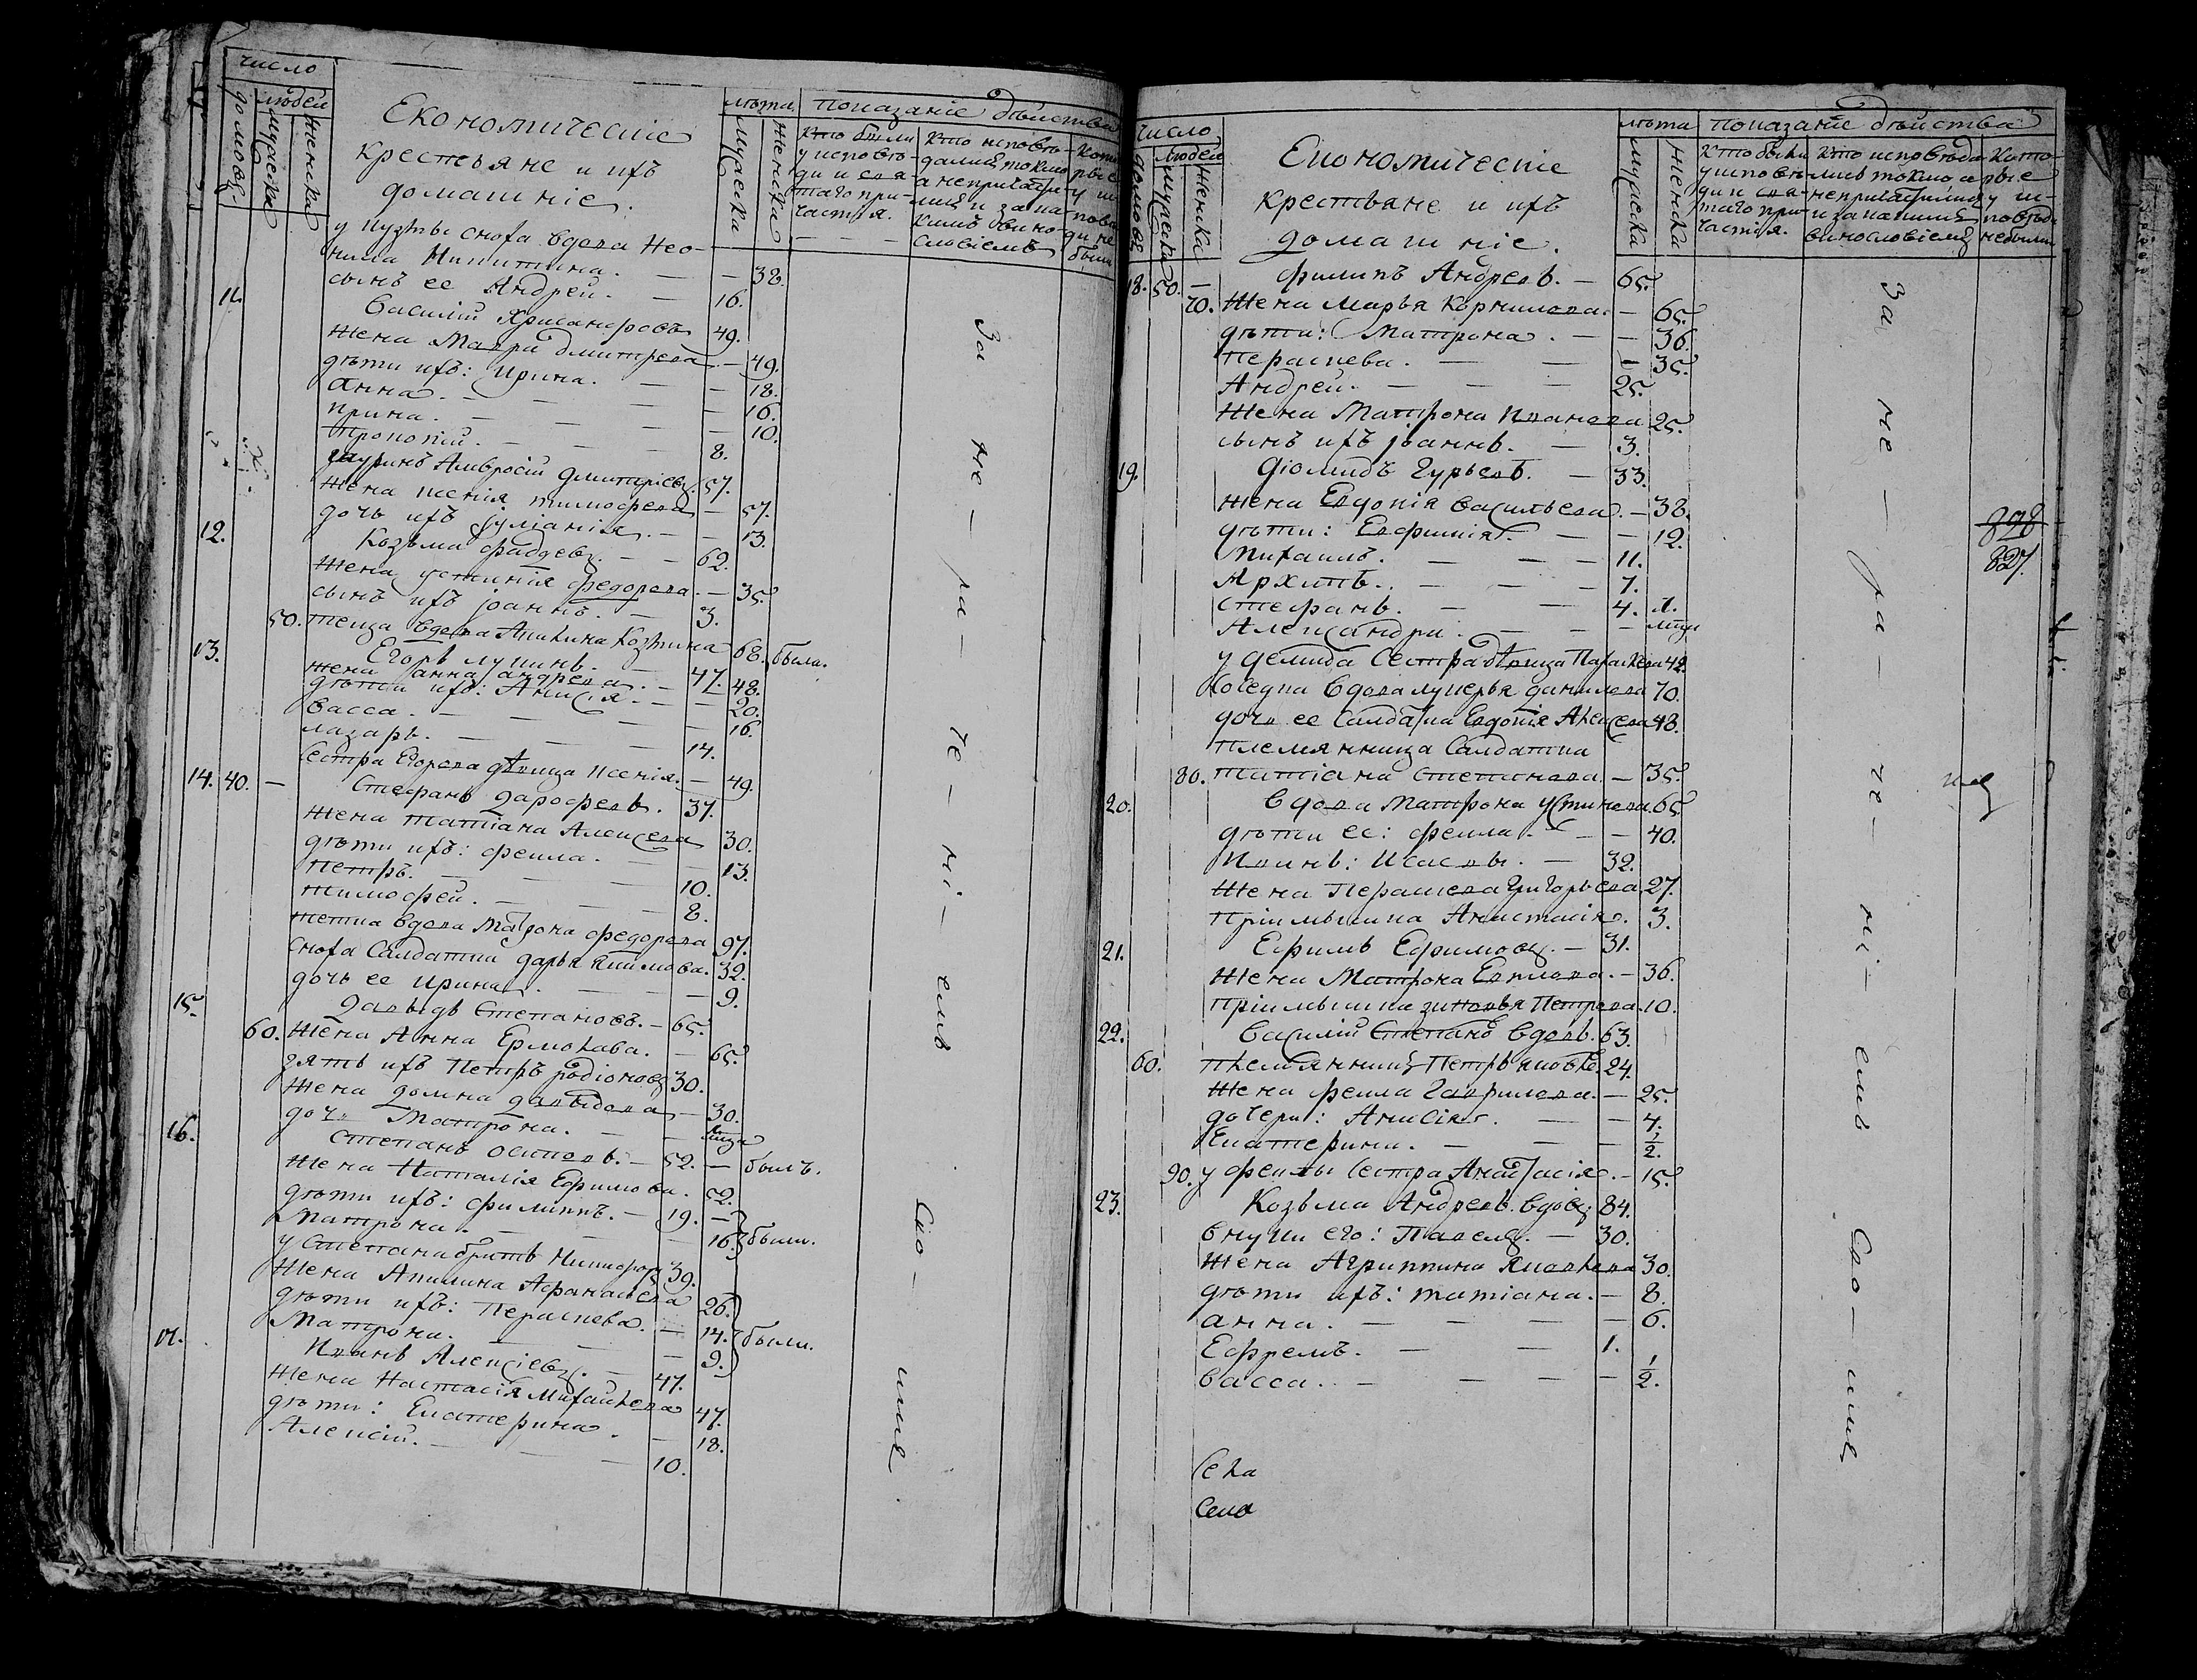 число
людей
домовъ
мужеска
женска
Економическіе
крестьяне и ихъ
домашніе.
лѣта
мужеска
женска
показаніе дѣйства
кто были
у исповѣ-
ди и свя-
таго при-
частія.
кто исповѣ-
дались токмо
а непричасти-
лись и за ка-
кимъ вино-
словіемъ
у Кузмы сноха вдова Нео-
нила Никитина. — — 38.
сынъ ее Андрей. — 16.
11. Василій Хрисанфовъ 49.
жена Мавра Дмитрева — 49.
дѣти ихъ: Ирина. — — 18.
Анна. — — — 16.
Ирина. — — — 10.
Прокопій. — — 8.
шуринъ Амвросій Дмитріевъ 57.
жена Ксенія Тимофева — 57.
дочь ихъ Іуліанія. — — 13.
12. Козьма Фадѣевъ. — 62.
жена Устинія Федорова. — 35.
сынъ ихъ Іоаннъ. — 3.
50. теща вдова Акилина Козмина 68. была.
13. Егоръ Лупинъ. — 47.
жена Анна Андрева. — 48.
дѣти ихъ: Анисія. — — 20.
Васса. — — — 16.
Лазарь. — — 14.
Сестра Егорова дѣвица Ксенія. — 49.
14. 40. — Стефанъ Дарофеевъ. 37.
жена Татіана Алексева 30.
дѣти ихъ: Фекла. — — 13.
Петръ. — — 10.
Тимофей. — — 8.
тетка вдова Матрона Федорова 97.
сноха Салдатка Дарья Якимова. 32.
дочь ее Ирина. — — 9.
15. Давыдъ Степановъ. — 65.
60. жена Анна Ермолава. — 65.
зять ихъ Петръ Родіоновъ 30.
жена Домна Давыдова — 30.
дочь Матрона. — —
16. Степанъ Осиповъ. — 52. — былъ.
жена Наталія Ефимова. 52.
дѣти ихъ: Филиппъ. — 19. —
Матрона. — — — 16. были.
у Степана братъ Никифоръ 39.
жена Акилина Афанасева 26.
дѣти ихъ: Пераскева. — 14. были.
Матрона. — — 9.
17. Иванъ Алексіевъ. — 47.
жена Настасія Михайлова 47.
дѣти: Екатерина. — 18.
Алексій. — — 10.
за не-ра-че-ні-емъ сво-имъ.
число
людей
домовъ
мужеска
женска
Економическіе
крестьяне и ихъ
домашніе.
лѣта
мужеска
женска
показаніе дѣйства
кто были
у исповѣ-
ди и свя-
таго при-
частія.
кто исповѣда-
лись токмо а
непричастились
и за какимъ
винословіемъ
кото-
рые
у ис-
повѣди
небыли
18. 50. — Филипъ Андреевъ. — 65.
70. жена Марья Корнилова. — 65.
дѣти: Матрона. — — 36.
Пераскева. — — 35.
Андрей. — — — 25.
жена Матрона Иванова 25.
сынъ ихъ Іоаннъ. — 3.
19. Діомидъ Гурьевъ. — 33.
жена Евдокія Васильева. — 38.
дѣти: Евфимія. — — 12.
Михаилъ. — — 11.
Архипъ. — — — 7.
Стефанъ. — — 4.
Александра. — —
у Демида Сестра дѣвица Параскева 42.
Соседка вдова Лукерья Данилова 70.
дочь ее Салдатка Евдокія Алексева 48.
племянница Салдатка
80. Татіана Степанова. — 35.
20. вдова Матрона Устинова. 65.
дѣти ее: Фекла. — — 40.
Иванъ: Исаевъ. — 32.
жена Пераскева Григорьева 27.
пріимышка Анастасія. 3.
21. Ефимъ Ефимовъ. — 31.
жена Матрона Евлова. — 36.
пріимышка Зиновья Петрова. 10.
22. Василій Степанъ вдовъ. 63.
60. племянникъ Петръ Яковлѣ. 24.
жена Фекла Гаврилова. — 25.
дочери: Анисія. — 4.
Екатерина. — — — 1/2.
90. у Феклы сестра Анастасія. — 15.
23. Козьма Андреевъ. вдовъ. 84.
внуки его: Павелъ. — 30.
жена Агриппина Яковлева 30.
дѣти ихъ: Татіана. — 8.
Анна. — — — 6.
Ефремъ. — — 1.
Васса. — — — 1/2.
Села
Село
за не-ра-че-ні-емъ сво-имъ
828
827.